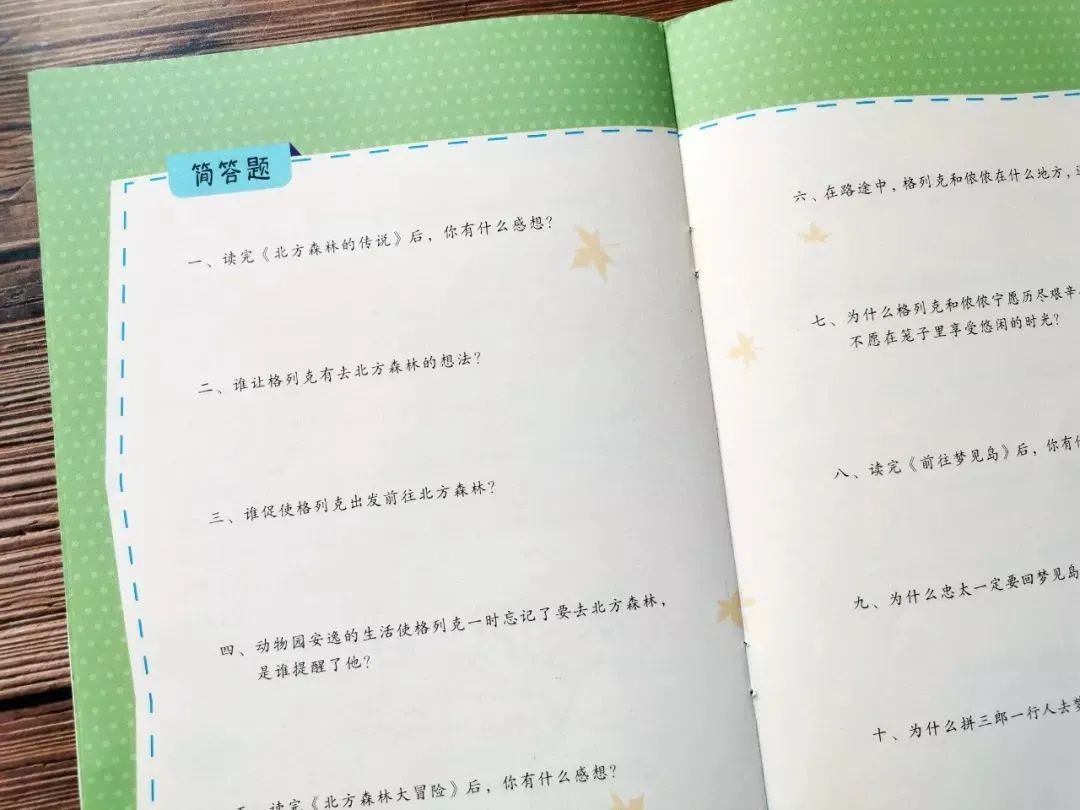 简答题
一、读完《北方森林的传说》后，你有什么感想？
二、谁让格列克有去北方森林的想法？
三、谁促使格列克出发前往北方森林？
四、动物园安逸的生活使格列克一时忘记了要去北方森林，
是谁提醒了他？
五、读完《北方森林大冒险》后，你有什么感想？
六、在路途中，格列克和侬侬在什么地方，
七、为什么格列克和侬侬宁愿历尽艰辛
不愿在笼子里享受悠闲的时光？
八、读完《前往梦见岛》后，你有
九、为什么忠太一定要回梦见岛
十、为什么拼三郎一行人去